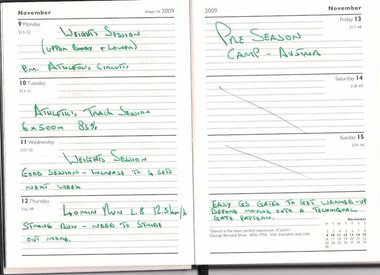 November
Week 46 2009
9 Monday
313–52
Weights Session
(Upper Body + Lower)
P.M. Athletics Circuits
10 Tuesday
314–51
Athletics Track Session
6x500m 85%
11 Wednesday
315–50
Weights Session
Good Session – Increase to 4 sets
next week
12 Thursday
316–49
40min Run L.8 12.5km/h
Strong Run – Need to Stride
out more.
2009
November
Friday 13
317–48
Pre Season
Camp – Austria
Saturday 14
318–47
Sunday 15
319–46
Easy GS Gates to get warmed-up
before moving onto a technical
gate pattern.
Silence is the most perfect expression of scorn.
George Bernard Shaw, 1856–1950, Irish dramatist and critic